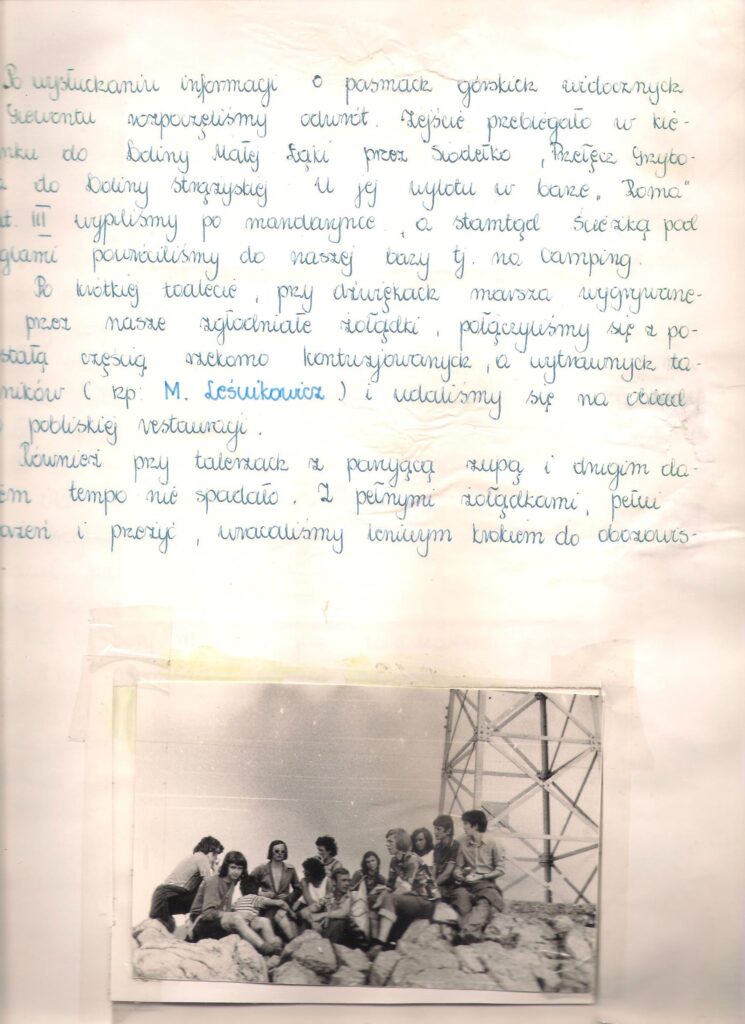 Po wysłuchaniu informacji o pasmach górskich widocznych
Giewontu rozpoczęliśmy odwrót. Zejście przebiegało w kie-
nku do Doliny Małej Łąki przez Siodełko, Przełęcz Grzybo-
do Doliny Strążyskiej U jej wylotu w barze „Roma"
t. III wypiliśmy po mandarynce, a stamtąd ścieżką pod
glami powróciliśmy do naszej bazy tj. na Camping.
Po krótkiej toalecie, przy dźwiękach marsza wygrywane-
przez nasze zgłodniałe żołądki, połączyliśmy się z po-
stałą częścią rzekomo kontuzjowanych, a wytrawnych ta-
ników ( np: M. Leśnikowicz ) i udaliśmy się na obiad
pobliskiej restauracji.
Również przy talerzach z parującą zupą i drugim da-
em tempo nie spadało. Z pełnymi żołądkami, pełni
ażeń i przeżyć, wracaliśmy leniwym krokiem do obozowis-